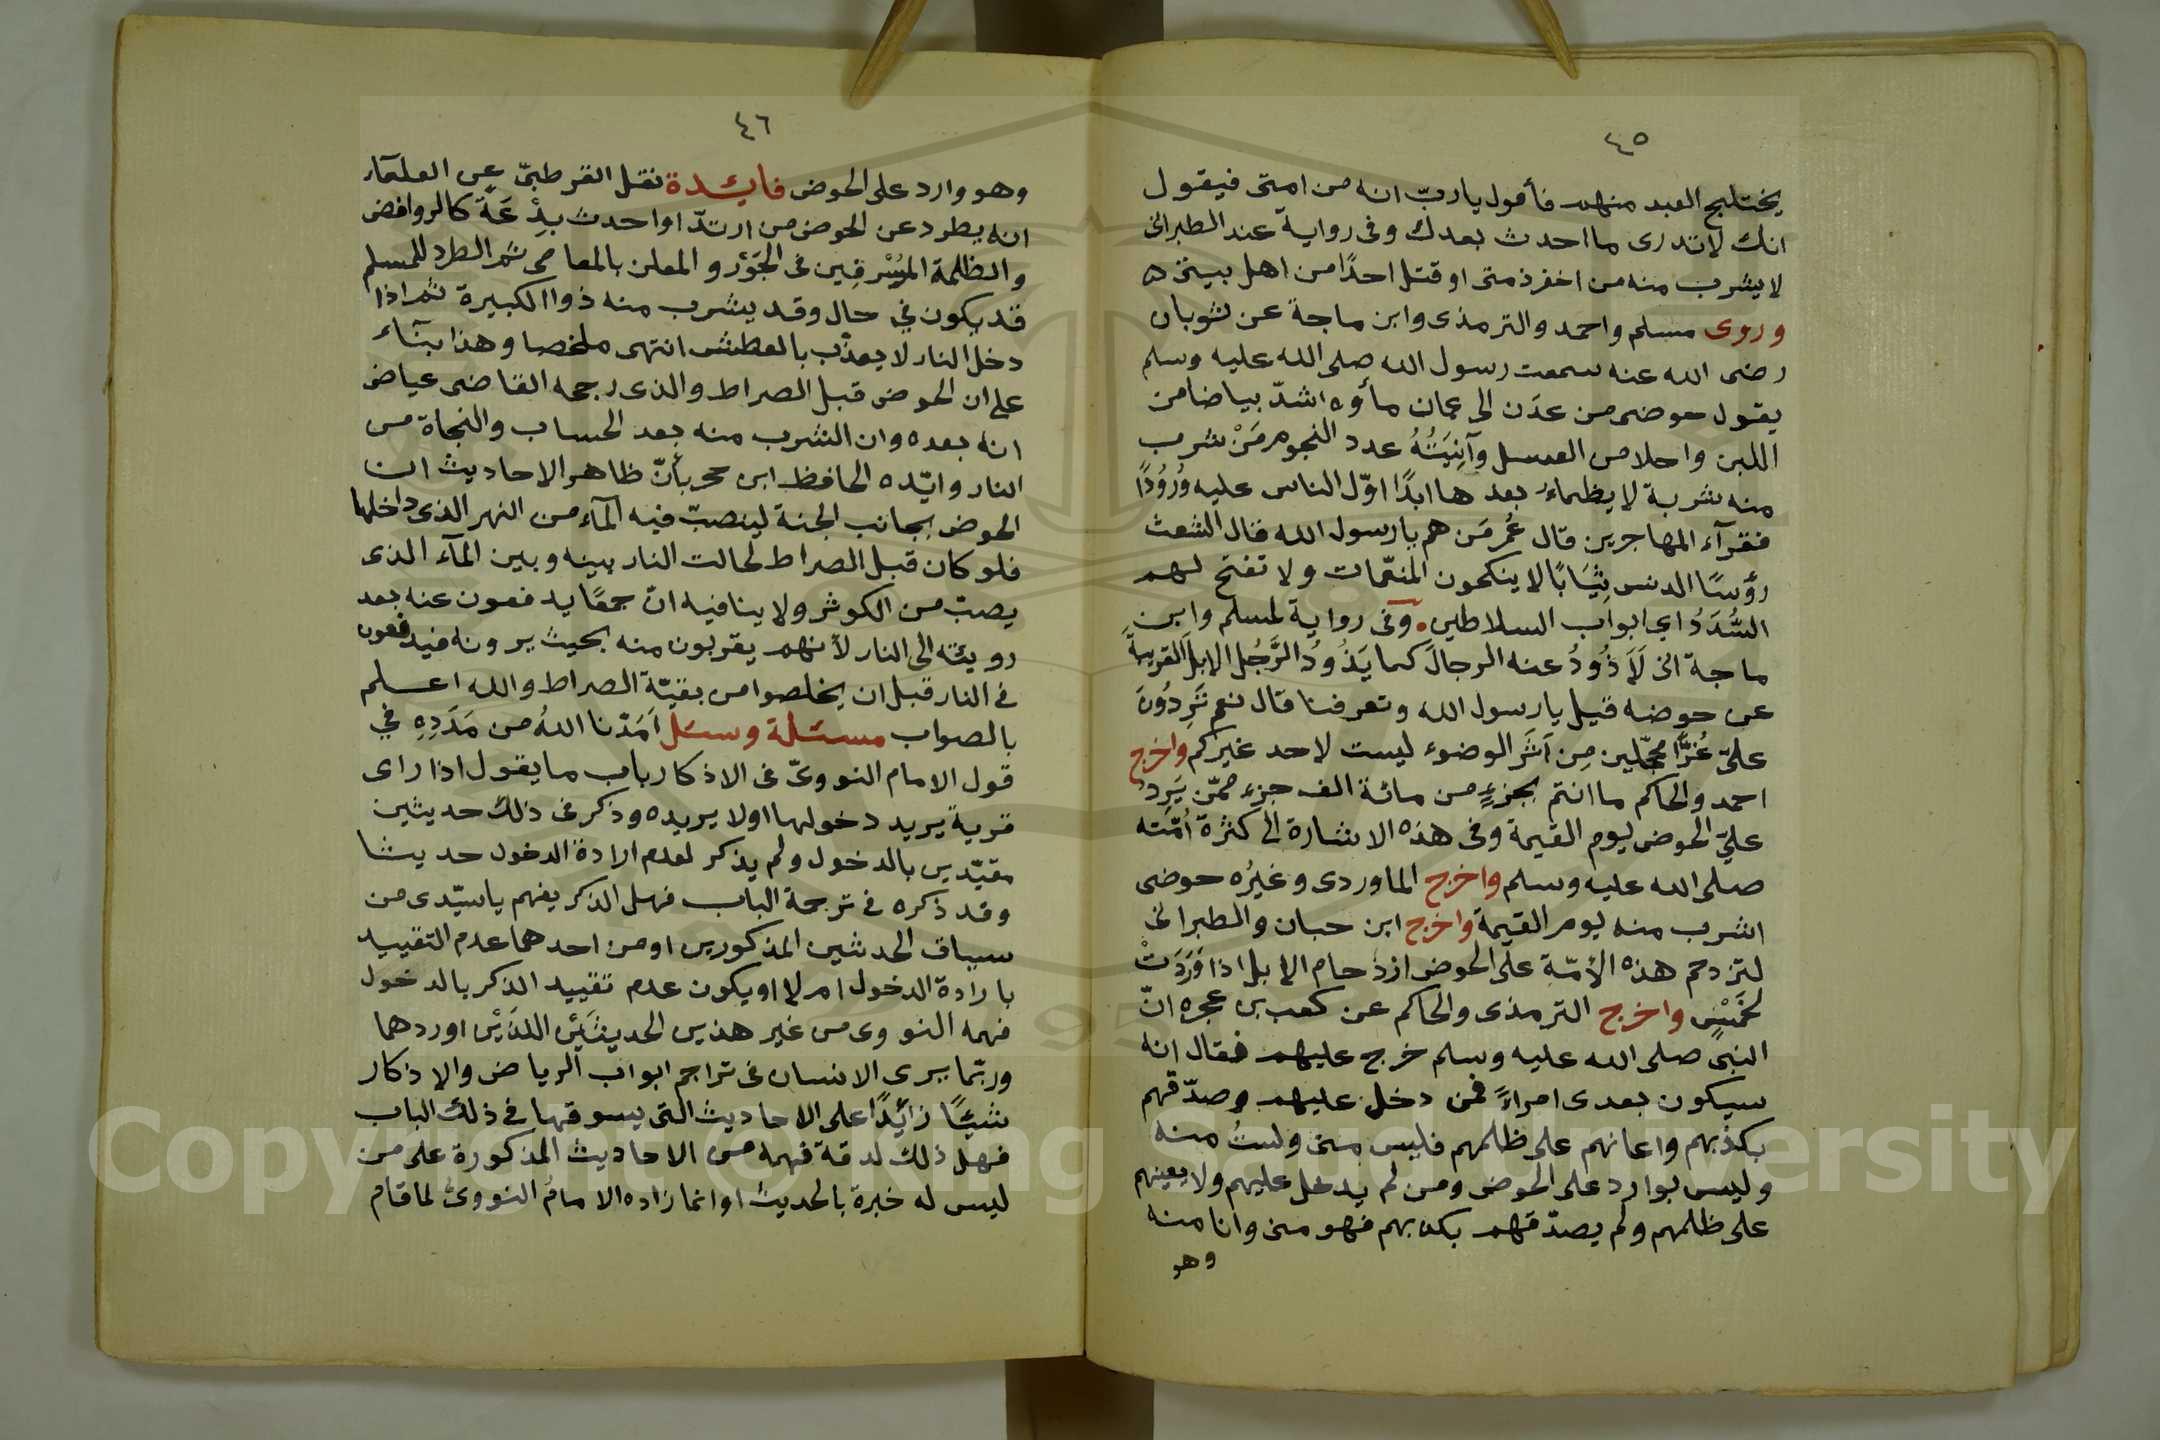 ٤٥
يختلج العبد منهم فأقول يا ربّ انه من امتى فيقول
انك لاتدرى ما احدث بعدك وفى رواية عند الطبرانى
لا يشرب منه من اخفر ذمتى او قتل احدًا من اهل بيتى ه
وروى مسلم واحمد والترمذى وابن ماجة عن ثوبان
رضى الله عنه سمعت رسول الله صلى الله عليه وسلم
يقول حوضى من عدَن الى عمان مأوٗه اشدّ بياضا من
اللبن واحلا من العسل وآنِيَتُهُ عدد النجوم مَنْ شرب
منه شربة لا يظماء بعدها ابدًا اوّل الناس عليه وُرُودًا
فقرآء المهاجرين قال عُمر مَن هم يا رسول الله قال الشعث
رؤسًا الدنس ثِيَابًا لا ينكحون المنعّمات ولا تفتح لهم
السُّدَدُ اي ابواب السلاطين . وفى رواية لمسلم وابن
ماجة انى لَاَذُودُ عنه الرجالَ كما يَذُودُ الرَّجُل الابلَ الغريبةَ
عن حوضه قيل يا رسول الله وتعرفنا قال نعم تَرِدُونَ
علىّ غُرًّا محجّلين مِن اَثَر الوضوء ليست لاحد غيركم واخرج
احمد والحاكم ما انتم بجزءٍ من مائة الف جزء ممّن يَرِدُ
علىّ الحوض يوم القيمة وفى هذه الاشارة الى كثرة اُمّته
صلى الله عليه وسلم واخرج الماوردى وغيرُه حوضى
اشرب منه يوم القيمة واخرج ابن حبان والطبرانى
لتزدحم هذه الأمّة على الحوض ازدحام الابل اذا وَرَدَتْ
لخَمْسٍ واخرج الترمذى والحاكم عن كعب بن عجره انّ
النبى صلى الله عليه وسلم خرج عليهم فقال انه
سيكون بعدى امراءً فمن دخل عليهم وصدّقهم
بكذبهم واعانهم على ظلمهم فليس منى ولستُ منه
وليس بوارد على الحوض ومن لم يدخل عليهم ولا يعينهم
على ظلمهم ولم يصدّقهم بكذبهم فهو منى وانا منه
وهو
٤٦
وهو وارد على الحوض فايئدة نقل القرطبىّ عن العلمآء
انه يطرد عن الحوض من ارتدّ او احدث بِدْعَةً كالروافض
والظلمة المُسْرِفِين فى الجَوْر والمعلن بالمعاصى ثم الطرد للمسلم
قد يكون في حال وقد يشرب منه ذوا الكبيرة ثم اذا
دخل النار لا يعذّب بالعطش انتهى ملخصا وهذا بنآء
على ان الحوض قبل الصراط والذى رجحه القاضى عياض
انه بعده وان الشرب منه بعد الحساب والنجاة من
النار وايّده الحافظ ابن حجر بأنّ ظاهر الاحاديث ان
الحوض بجانب الجنة لينصبّ فيه المآء من النهر الذى داخلها
فلو كان قبل الصراط لحالت النار بينه وبين المآء الذى
يصبّ من الكوثر ولا ينافيه انّ جمعًا يدفعون عنه بعد
رويئته الى النار لأنهم يقربون منه بحيث يرونه فيدفعون
فى النار قبل ان يخلصوا من بقيّة الصراط والله اعلم
بالصواب مسئلة وسئل اَمَدّنا اللهُ من مَدَدِهِ في
قول الامام النووىّ فى الاذكار باب ما يقول اذا راى
قرية يريد دخولها اولا يريده وذكر فى ذلك حديثين
مقيّدين بالدخول ولم يذكر لعدم ارادة الدخول حديثا
وقد ذكره فى ترجمة الباب فهل الذكر يفهم يا سيّدى من
سياق الحدثين المذكورين او من احدهما عدم التقييد
بارادة الدخول ام لا او يكون عدم تقييد الذكر بالدخول
فهمه النووى من غير هذين الحديثَيْن اللذَيْن اوردهما
وربّما يرى الانسان فى تراجم ابواب الرياض والاذكار
شيئًا زايئدًا على الاحاديث التى يسوقها فى ذلك الباب
فهل ذلك لدقة فهمه من الاحاديث المذكورة على من
ليس له خبرة بالحديث او انما زاده الامامُ النووىُّ لما قام
Copyright © King Saud University